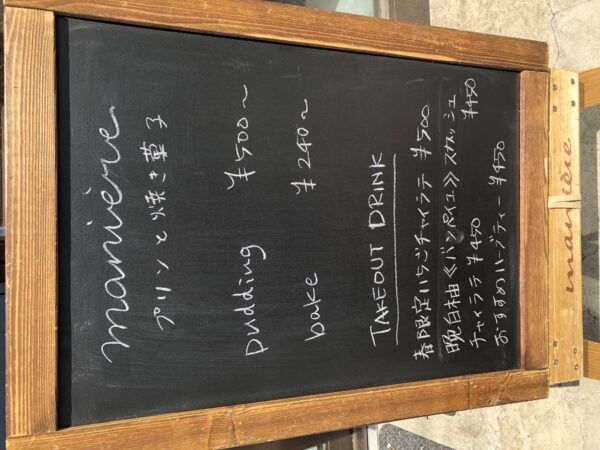 manière
プリンと焼き菓子
pudding ¥500〜
bake ¥240〜
TAKEOUT DRINK
春限定いちごチャイラテ ¥500
晩白柚《バンペイユ》スカッシュ ¥450
チャイラテ ¥450
おすすめハーブティー ¥450
manière